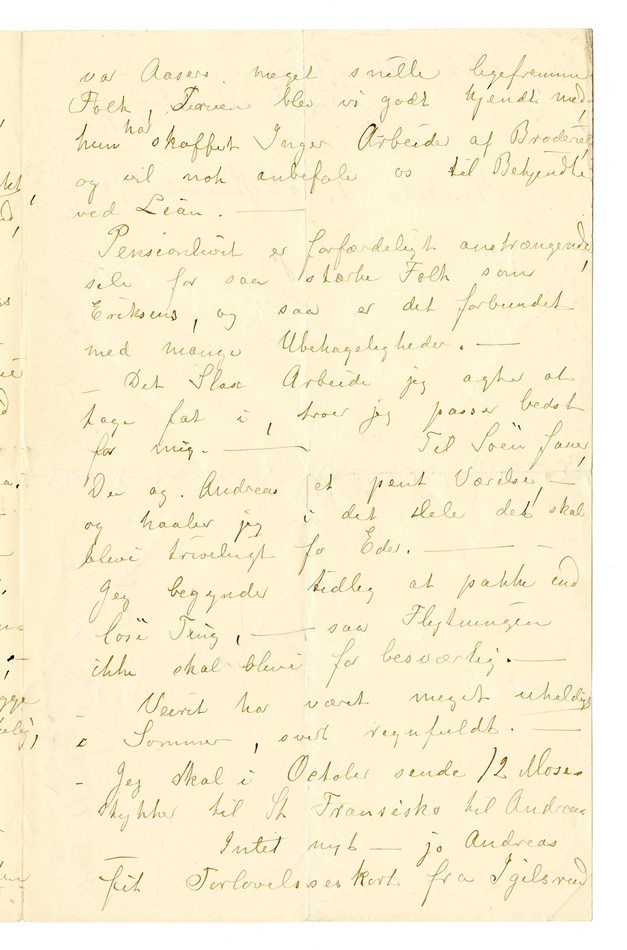 var Aasers meget snille ligefremme
Folk, Fruen blev vi godt kjendt med,
hun har skaffet Inger Arbeide af Broderie
og vil nok anbefale os til Bekjendte
ved Lian. —
Pensionlivet er forfærdeligt anstrængende,
selv for saa stærke Folk som
Eriksens, og saa er det forbundet
med mange Ubehageligheder. —
— Det Slags Arbeide jeg agter at
tage fat i, troer jeg passer bedst
for mig. — Til Søen faaer,
Du og Andreas et pent Værelse, —
og haaber jeg i det Hele det skal
blive triveligt for Eder. —
Jeg begynder tidlig at pakke ind
løse Ting, — saa Flytningen
ikke skal blive for besværlig. —
— Veiret har været meget uheldigt
i Sommer, svært regnfuldt. —
— Jey skal i October sende 12 Mose-
stykker til St Fransisko til Andreas.
Intet nyt — jo Andreas
fik Forlovelseskort fra Igilsrud